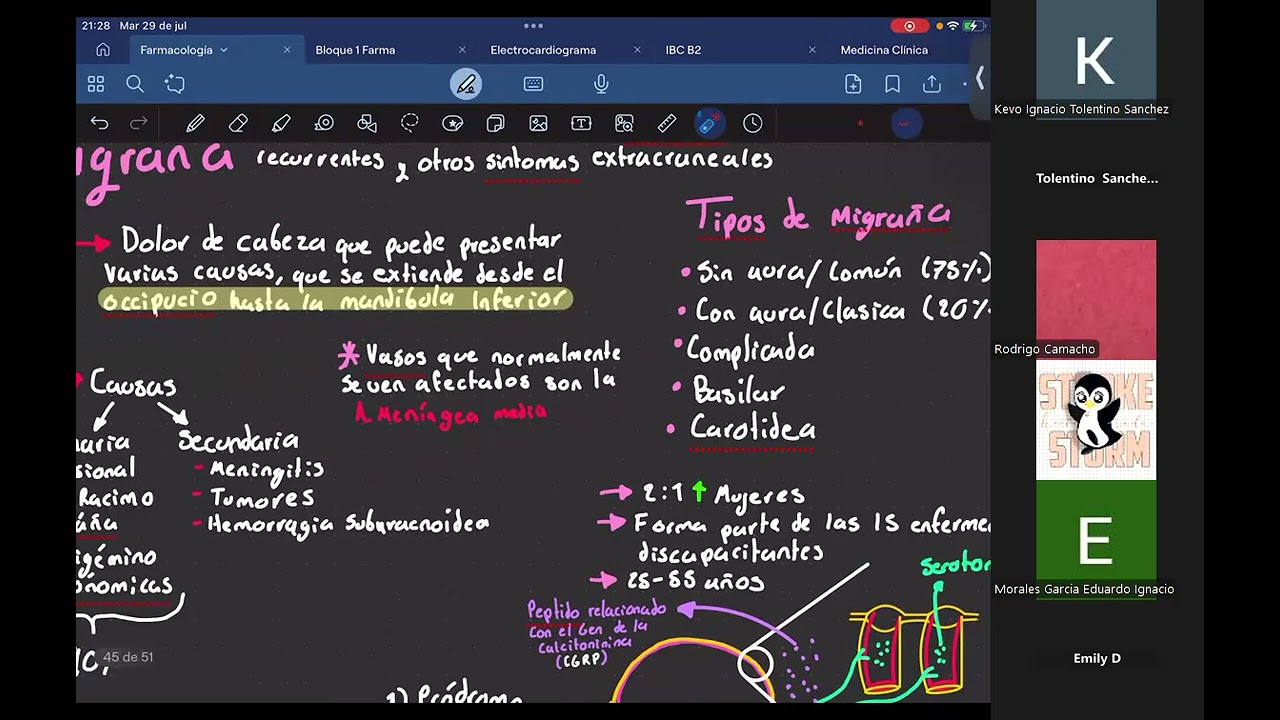 21:28 Mar 29 de jul
Farmacología
Bloque 1 Farma
Electrocardiograma
IBC B2
Medicina Clínica
igraña recurrentes y otros sintomas extracraneales
Dolor de cabeza que puede presentar
varias causas, que se extiende desde el
occipucio hasta la mandibula Inferior
* Vasos que normalmente
se ven afectados son la
A. Meníngea media
Causas
maria
sional
Racimo
aña
igémino
onómicas
Secundaria
- Meningitis
- Tumores
- Hemorragia Subaracnoidea
Tipos de Migraña
• Sin aura/Común (75%)
• Con aura/Clasica (20%
• Complicada
• Basilar
• Carotidea
2:1 ↑ Mujeres
Forma parte de las 15 enferme
discapacitantes
25-55 años
Peptido relacionado
Con el Gen de la
Calcitoninina
(CGRP)
Seroton
45 de 51
1) Pródromo
K
Kevo Ignacio Tolentino Sanchez
Tolentino Sanche...
Rodrigo Camacho
STROKE
STORM
E
Morales Garcia Eduardo Ignacio
Emily D